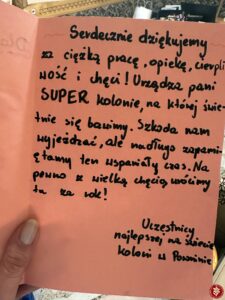 Serdecznie dziękujemy
za ciężką pracę, opiekę, cierpli
wość i chęci! Urządza pani
SUPER kolonie, na której świe-
tnie się bawimy. Szkoda nam
wyjeżdżać, ale na długo zapami-
ętamy ten wspaniały czas. Na
pewno z wielką chęcią wrócimy
tu za rok!
Uczestnicy
najlepszej na świecie
kolonii w